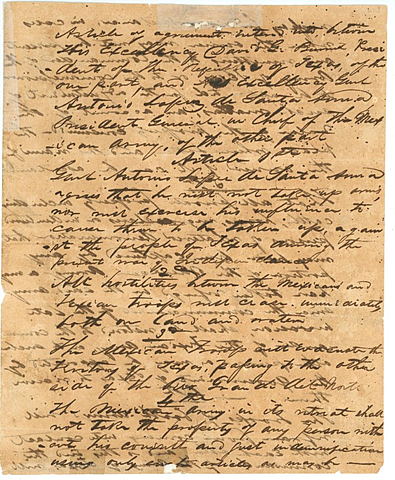 Articles of agreement entered into between
His Excellency David G. Burnet Presi
dent of the Republic of Texas of the
one part, and His Excellency Genl
Antonio Lopez de Santa Anna
President General in Chief of the Mex
ican Army, of the other part
Article 1st
Genl Antonio Lopez de Santa Anna
agrees that he will not take up arms
nor will exercise his influence to
cause them to be taken up, again
st the people of Texas during the
present war of
2
All hostilities between the Mexican and
Texian troops will cease immediately
both on land and water
3
The Mexican Troops will evacuate the
Territory of Texas, passing to the other
side of the Rio Grande del Norte
4th
The Mexican Army in its retreat shall
not take the property of any person with
out his consent and just indemnification
using only such articles as may be